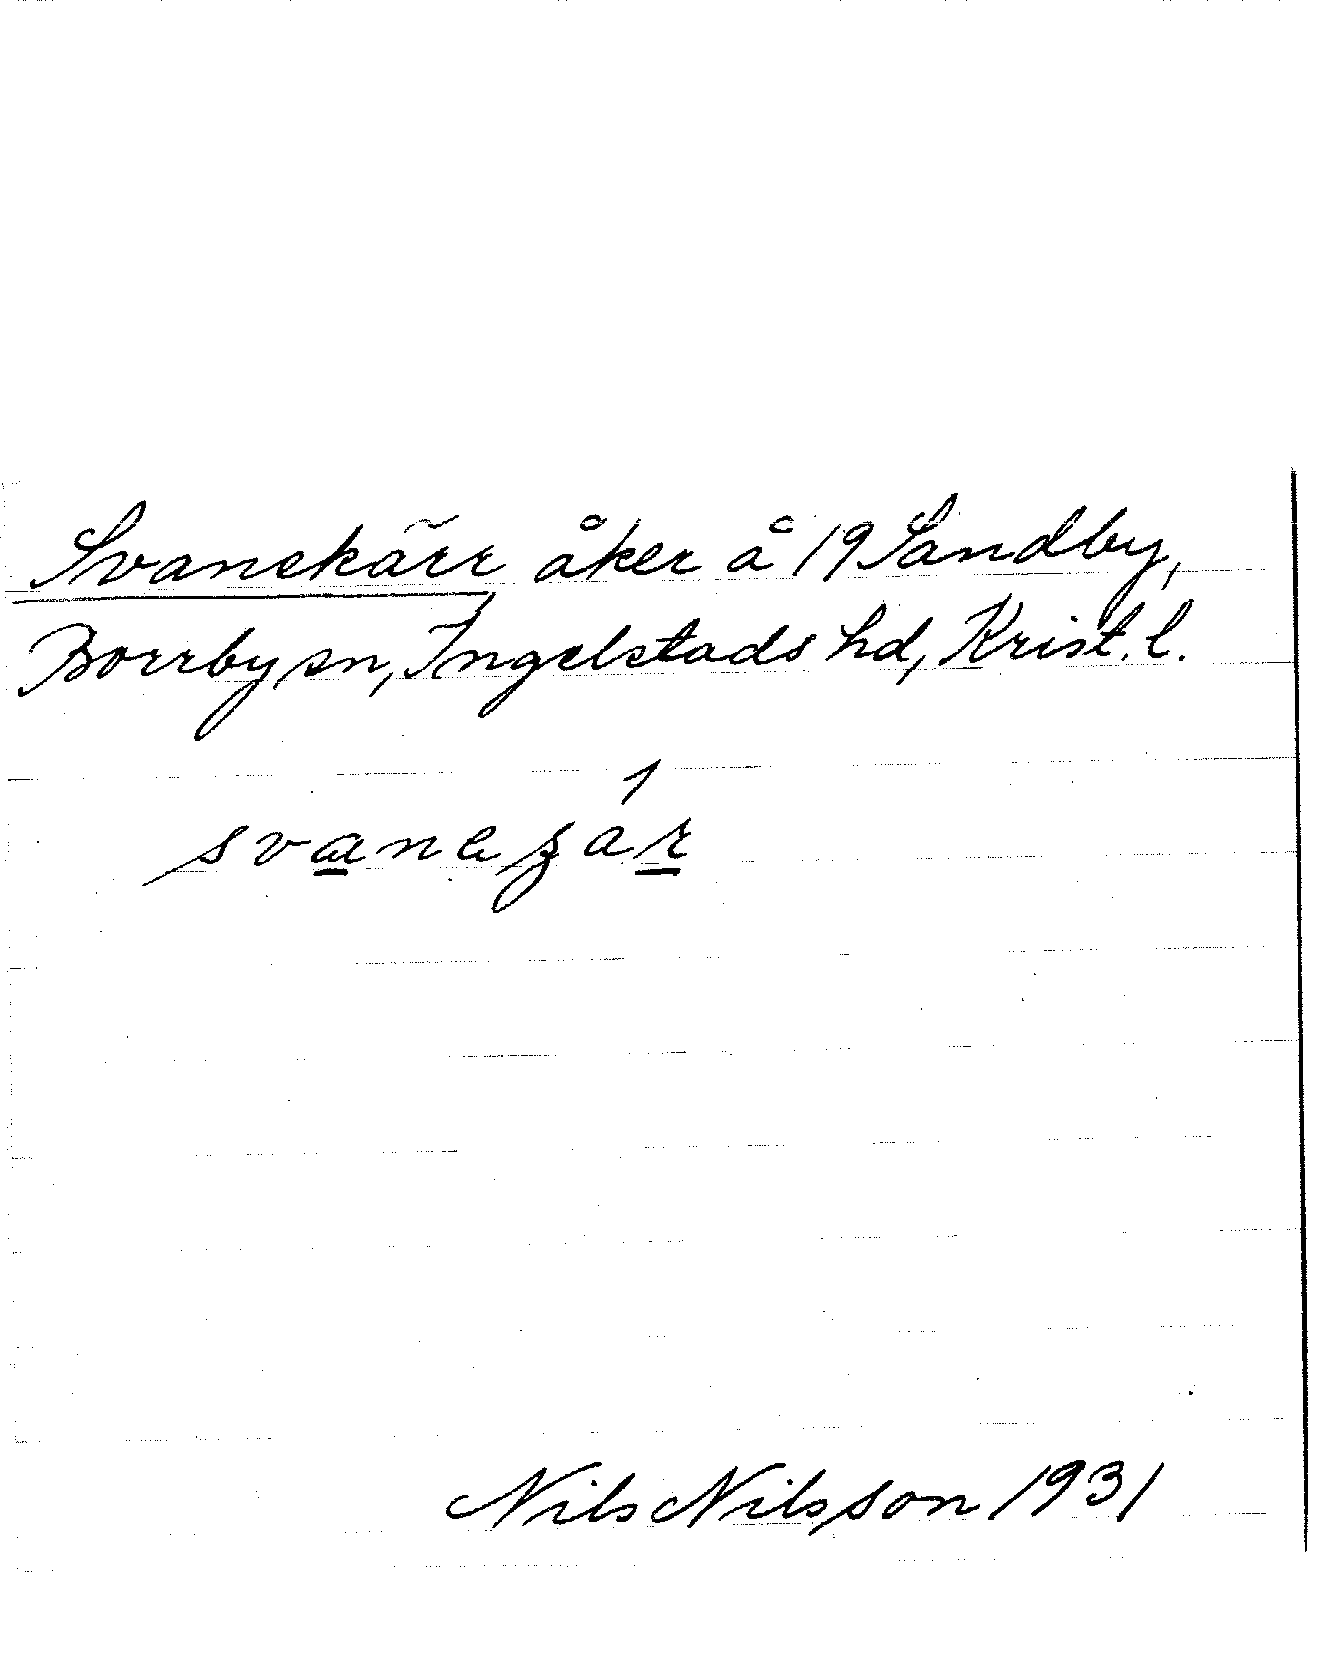 Svanekärr åker å 19 Sandby,
Borrby sn, Ingelstads hd, Krist. l.
Nils Nilsson 1931